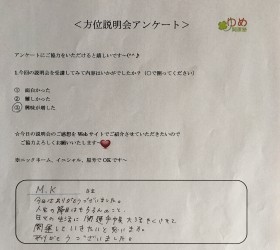 ＜方位説明会アンケート＞
ゆめ
アンケートにご協力をいただけると嬉しいです～(^^♪
1.今回の説明会を受講してみて内容はいかがでしたか？（〇で囲ってください）
① 面白かった
② 難しかった
③ 興味が増した
☆今日の説明会のご感想をWebサイトでご紹介させていただきたいので
ご協力よろしくお願いいたします
※ニックネーム、イニシャル、匿名でOKです～
M.K さま
今日はありがとうございました。
人生の節目はもちろんのこと
日々の生活に開運
開運していきたいと思います。
ありがとうございました